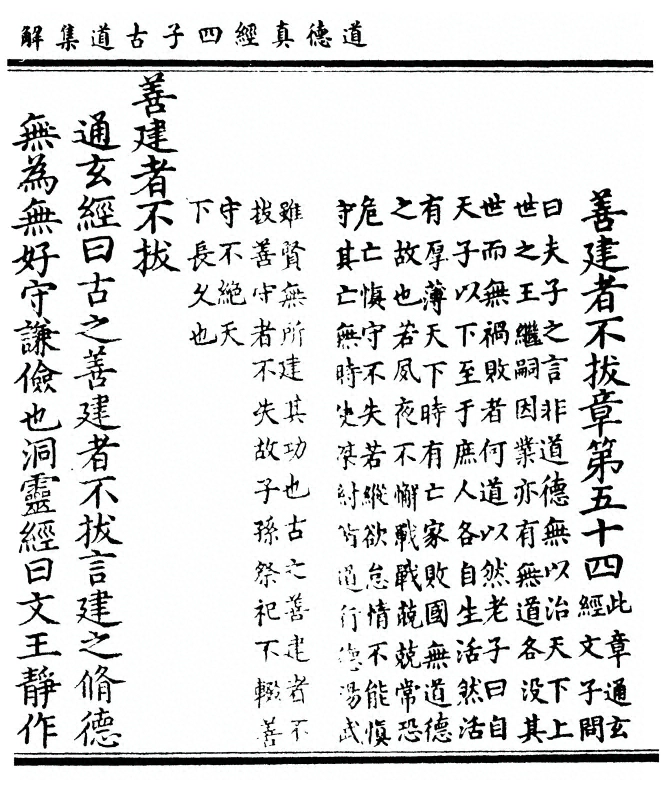 道德真經四子古道集解
善建者不拔章第五十四此章通玄
經文子問
曰夫子之言非道德無以治天下上
世之王繼嗣因業亦有無道各没其
世而無禍敗者何道以然老子曰自
天子以下至于庶人各自生活然活
有厚薄天下時有亡家敗國無道德
之故也若夙夜不懈戰戰兢兢常恐
危亡慎守不失若縱欲怠情不能慎
守其亡無時使桀紂脩道行德湯武
雖賢無所建其功也古之善建者不
拔善守者不失故子孫祭祀不輟善
守不絶天
下長久也
善建者不拔
通玄經曰古之善建者不拔言建之脩德
無為無好守謙儉也洞靈經曰文王靜作